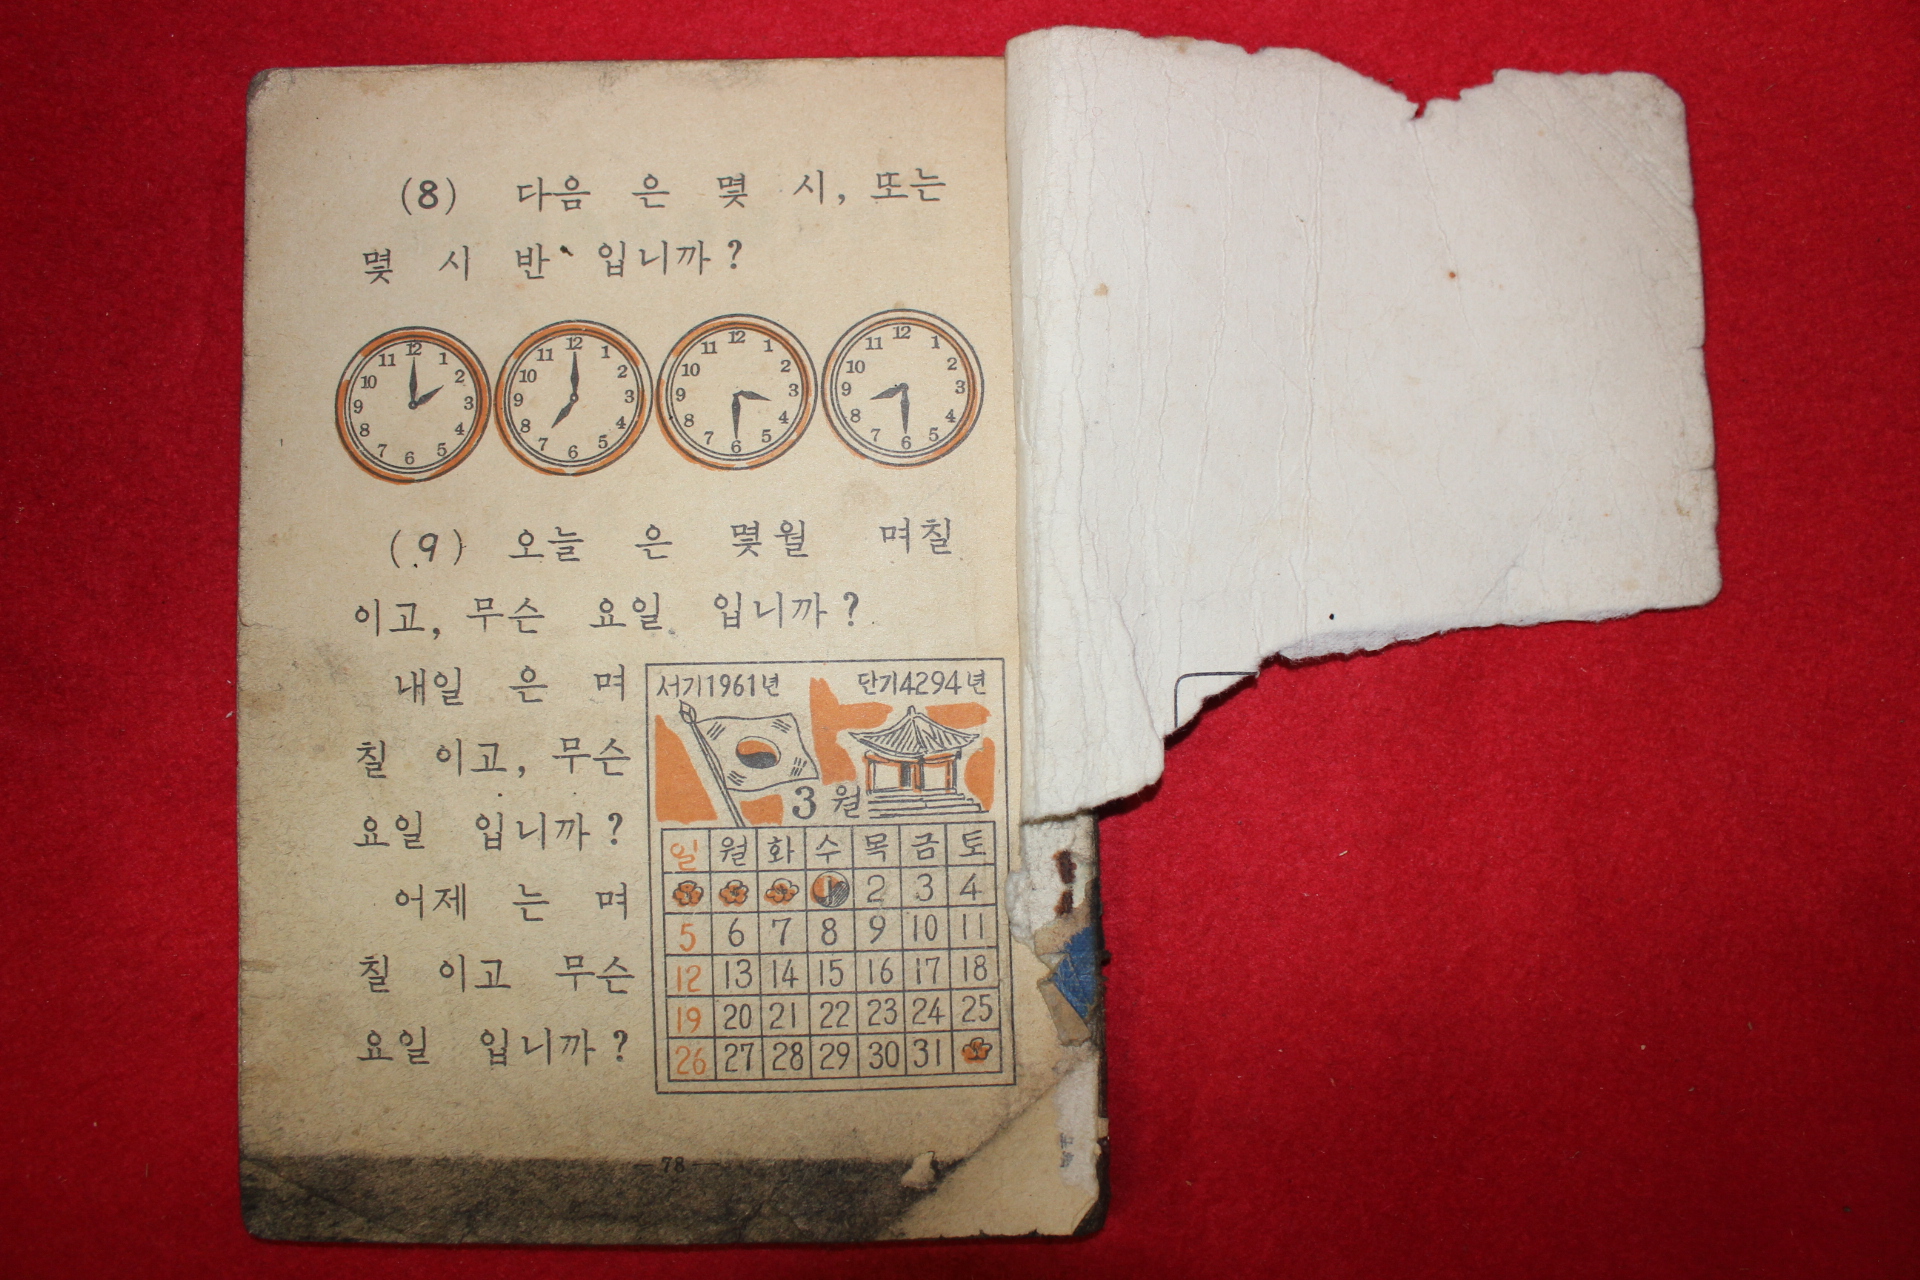 (8) 다음 은 몇 시, 또는
몇 시 반 입니까?
12 1 2 3 4 5 6 7 8 9 10 11
12 1 2 3 4 5 6 7 8 9 10 11
12 1 2 3 4 5 6 7 8 9 10 11
12 1 2 3 4 5 6 7 8 9 10 11
(9) 오늘 은 몇월 며칠
이고, 무슨 요일 입니까?
내일 은 며
칠 이고, 무슨
요일 입니까?
어제 는 며
칠 이고 무슨
요일 입니까?
서기1961년 단기4294년
3 월
일 월 화 수 목 금 토
1 2 3 4
5 6 7 8 9 10 11
12 13 14 15 16 17 18
19 20 21 22 23 24 25
26 27 28 29 30 31
— 78 —